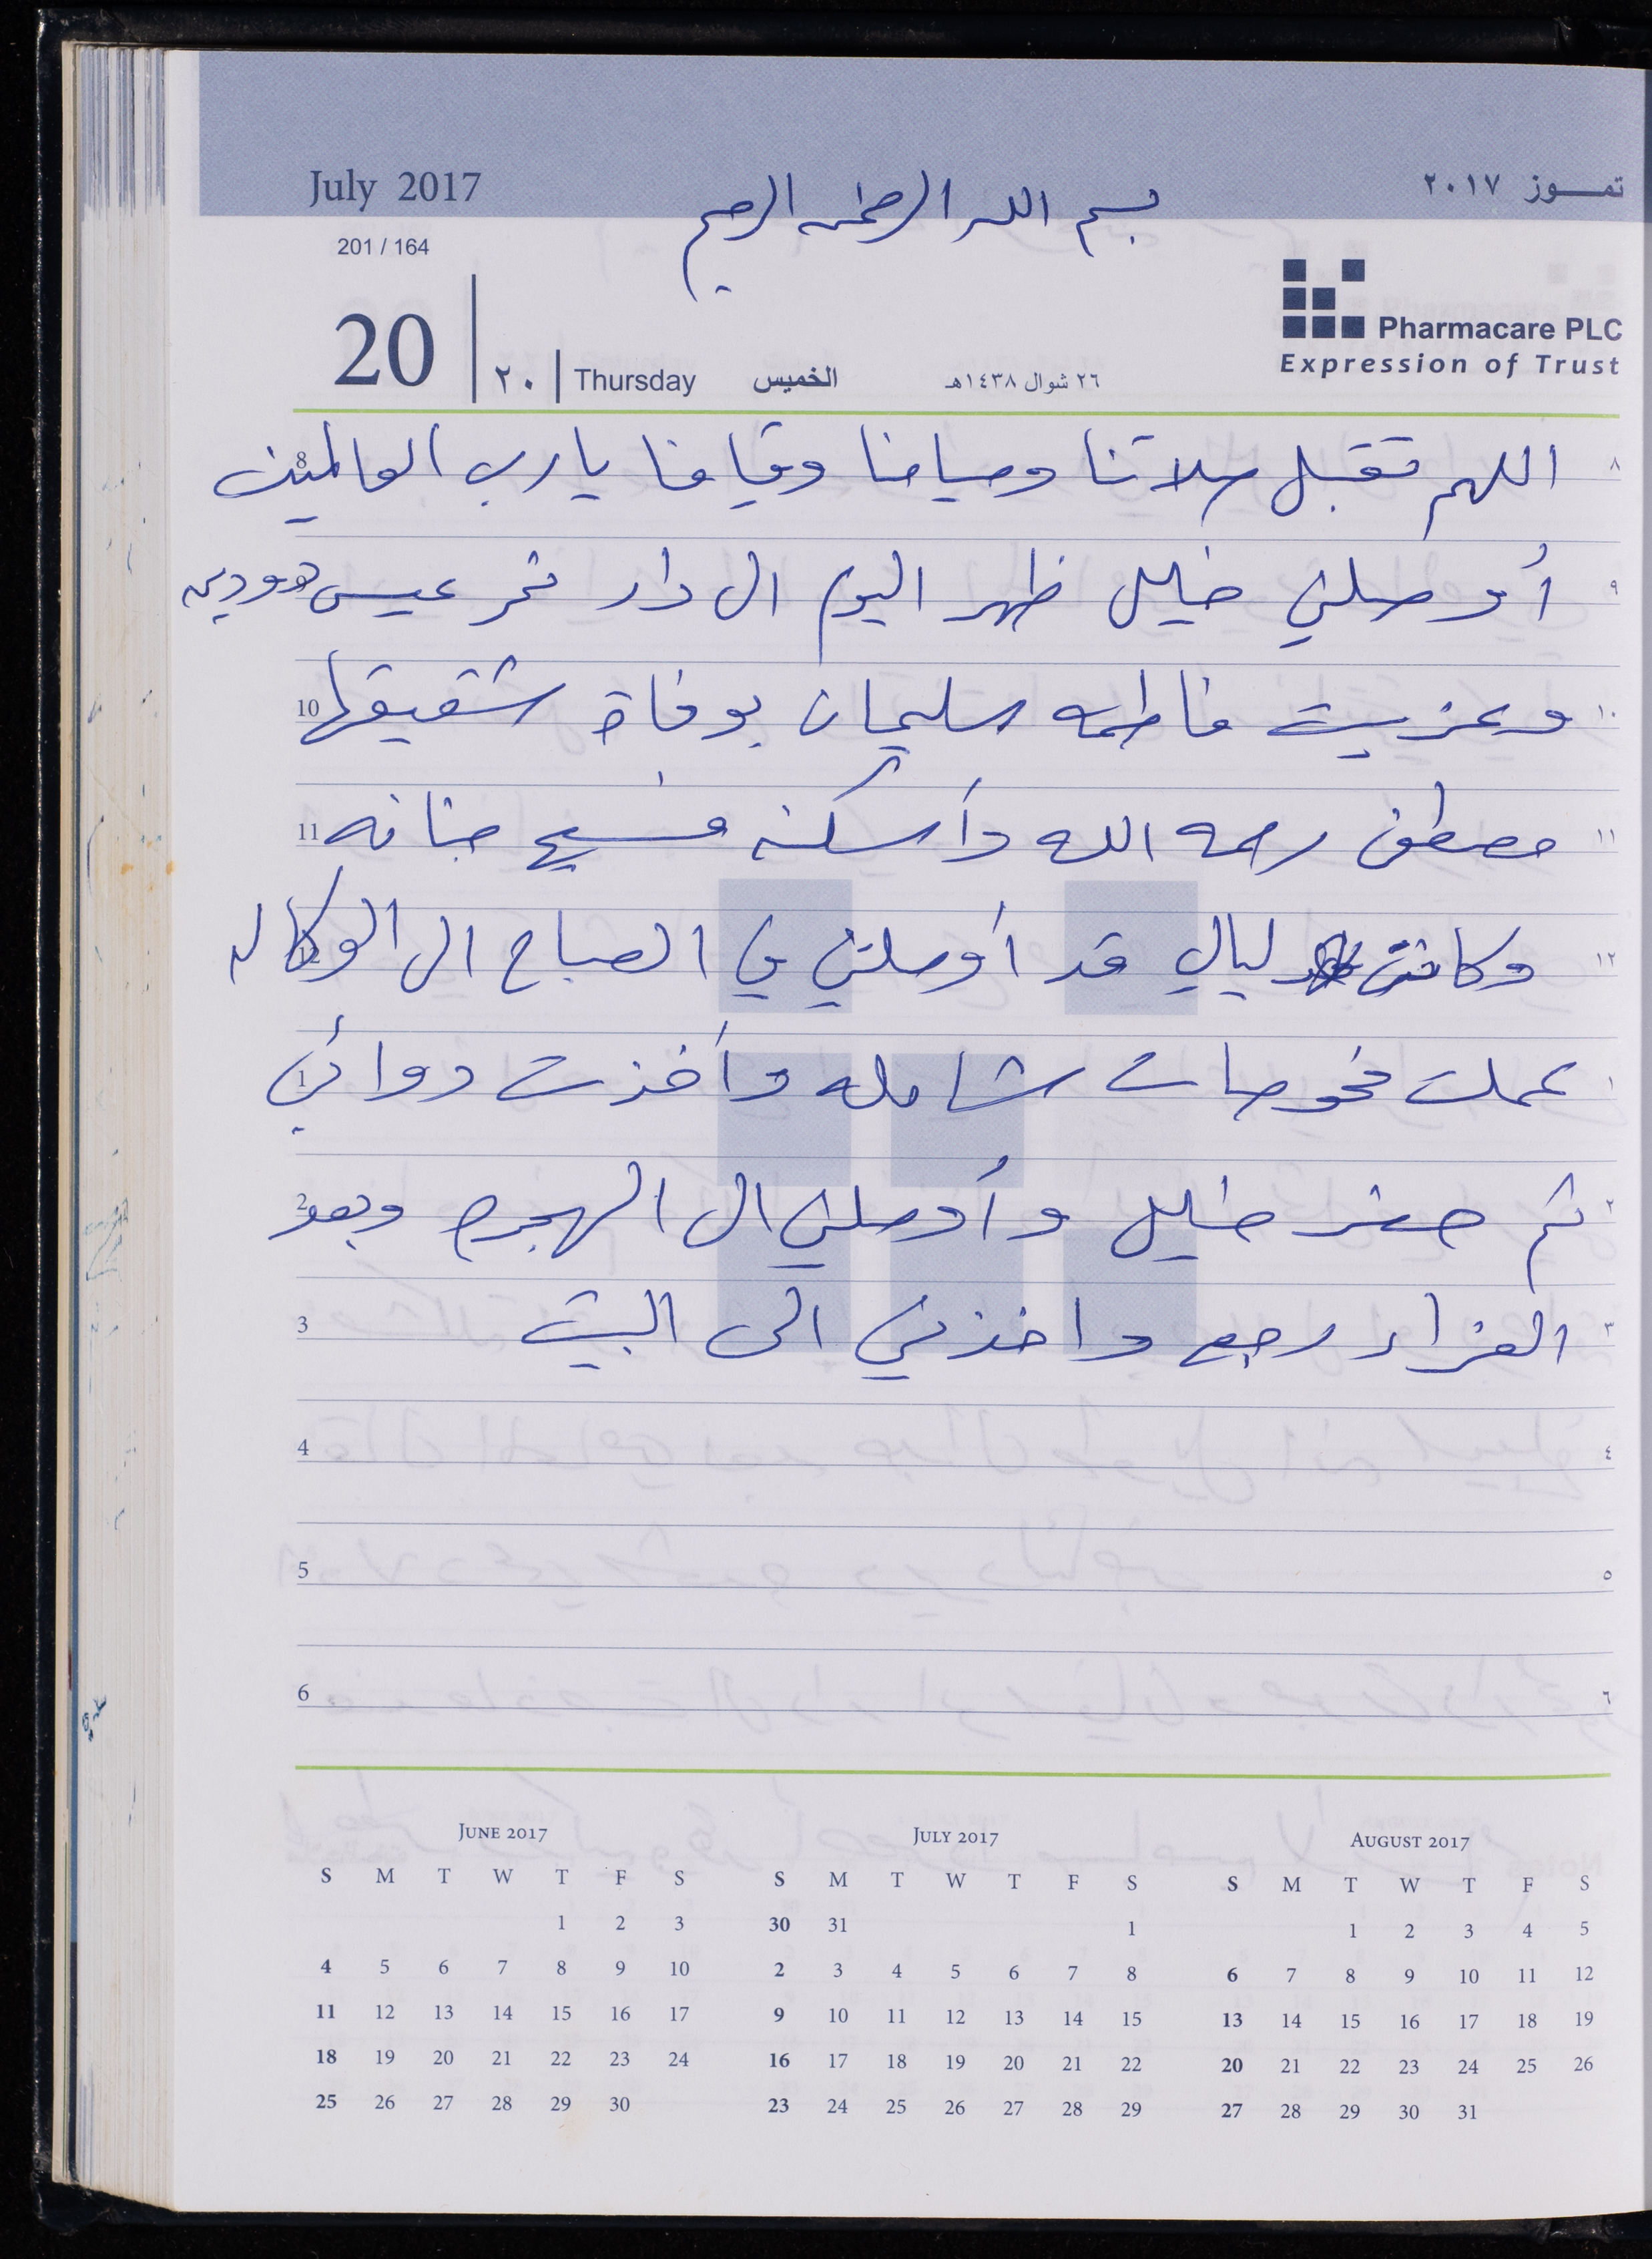 July 2017
بسم الله الرحمن الرحيم
تمـــوز ٢٠١٧
201 / 164
Pharmacare PLC
Expression of Trust
20 | ٢٠ | Thursday الخميس ٢٦ شوال ١٤٣٨هـ
8 اللهم تقبل صلاتنا وصيامنا وقيامنا يا رب العالمين ٨
أوصلني خليل ظهر اليوم الى دار نمر عيسى ٩
10 وعزيت فاطمه سليمان بوفاة شقيقها ١٠
11 مصطفى رحمه الله وأسكنه فسيح جنانه ١١
12 وكانت ليالي قد أوصلتني في الصباح الى الوكاله ١٢
1 عملت فحوصات شامله وأخذت دوائي ١
2 ثم حضر خليل وأوصلني الى الهجره وبعد ٢
3 العزاء رجع واخذني الى البيت ٣
4 ٤
5 ٥
6 ٦
JUNE 2017
S M T W T F S
1 2 3
4 5 6 7 8 9 10
11 12 13 14 15 16 17
18 19 20 21 22 23 24
25 26 27 28 29 30
JULY 2017
S M T W T F S
30 31 1
2 3 4 5 6 7 8
9 10 11 12 13 14 15
16 17 18 19 20 21 22
23 24 25 26 27 28 29
AUGUST 2017
S M T W T F S
1 2 3 4 5
6 7 8 9 10 11 12
13 14 15 16 17 18 19
20 21 22 23 24 25 26
27 28 29 30 31